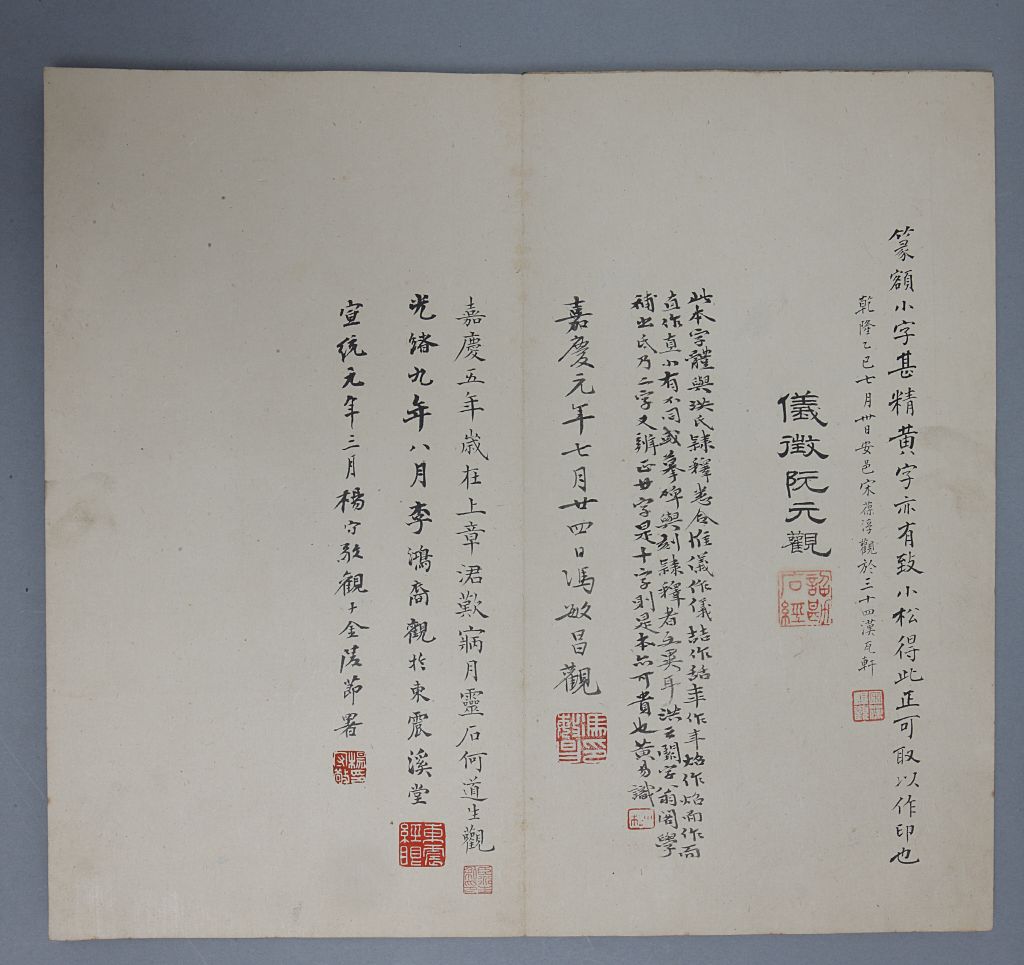 篆額小字甚精黃字亦有致小松得此正可取以作印也
乾隆乙巳七月卅日安邑宋葆淳觀於三十四漢瓦軒
儀徵阮元觀
詔勘石經
此本字體與洪氏隸釋悉合惟儀作儀喆作喆年作年焰作焰而作而
直作直小有不同或摹碑與刻隸釋者互異耳洪云闕字翁閣學
補出氏乃二字又辨正廿字是十字則是本亦可貴也黃易識
嘉慶元年七月廿四日馮敏昌觀
馮敏昌印
嘉慶五年歲在上章涒歎寎月靈石何道生觀
光緒九年八月李鴻裔觀於東震溪堂
宣統元年三月楊守敬觀于金陵節署
楊守敬印